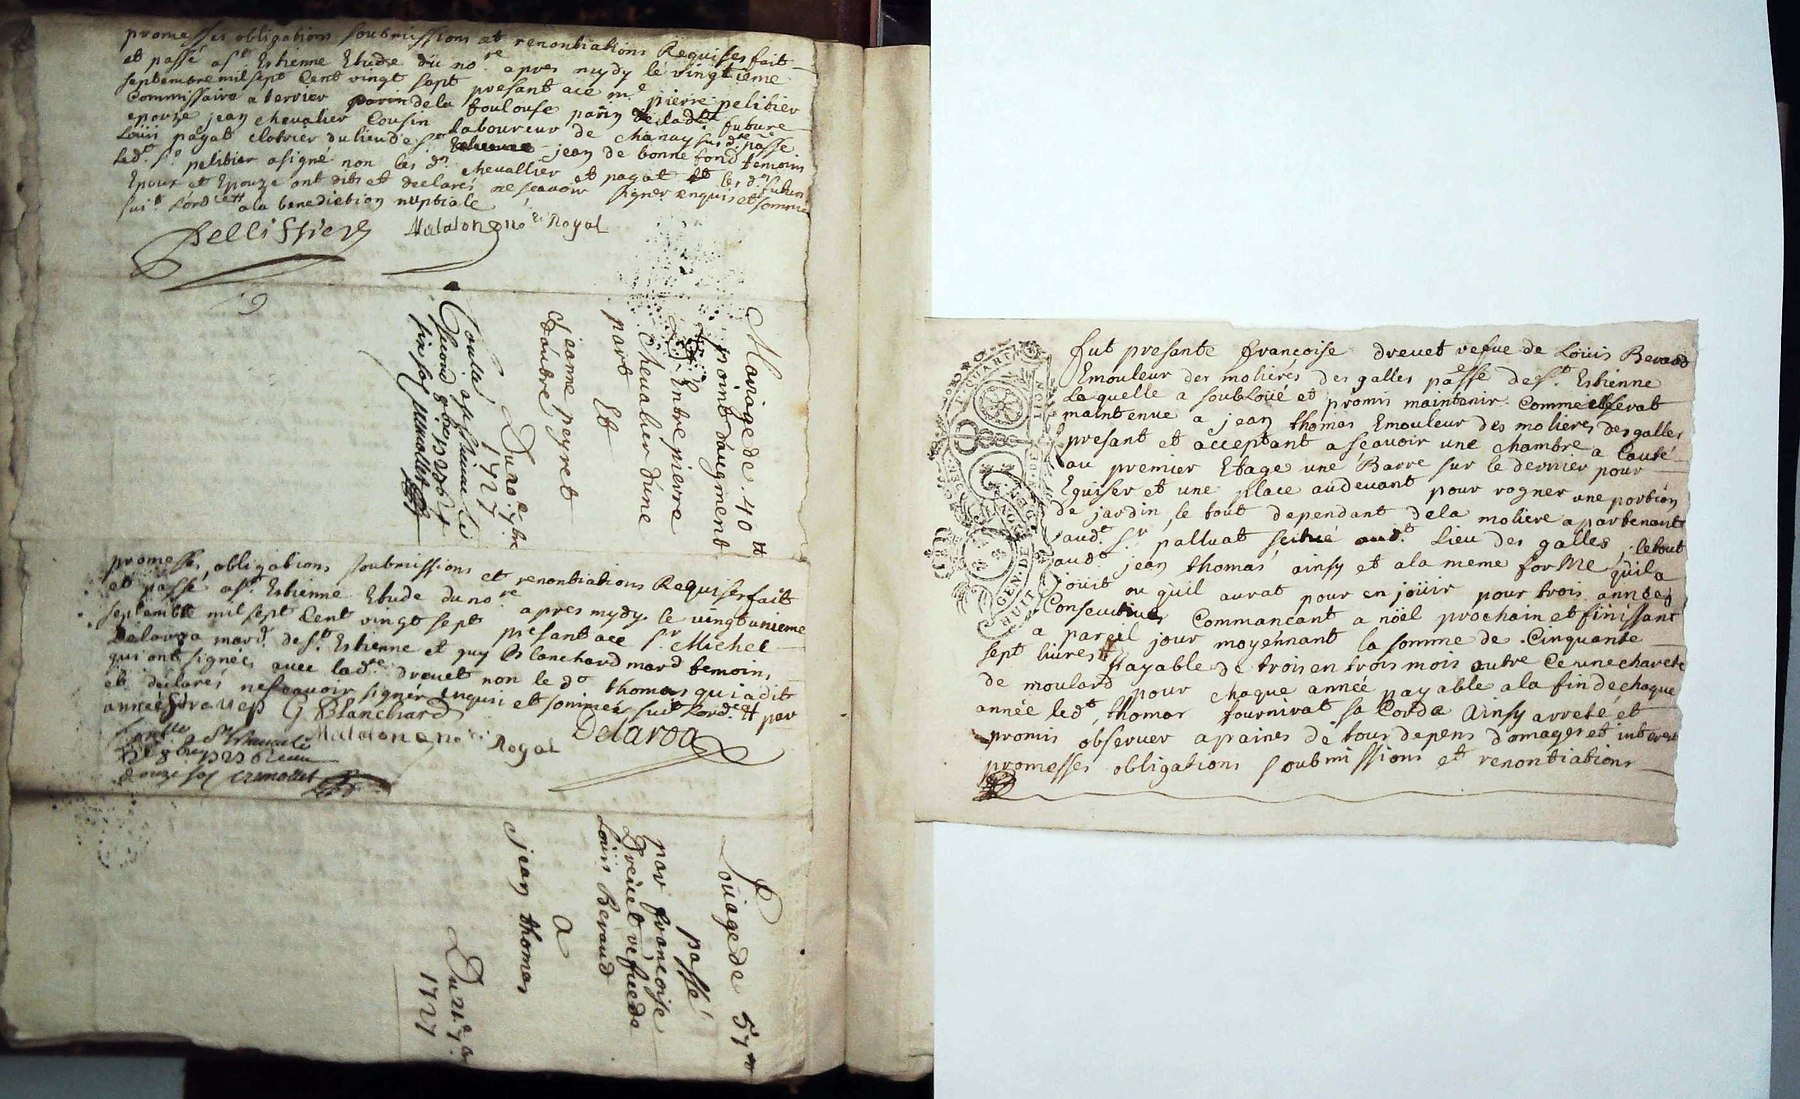 promesses obligations soubmissions et renontiations Requises fait
et passé a st. Estienne Etude du nore apres mydy le vingtieme
septembre mil sept Cent vingt sept presant a ce me pierre pelitier
Commissaire a terrier de la foulouse parin de lade. future
epouze jean chevalier Cousin laboureur de chanay susde. passe
Loüis payat clotrier du lieu de st. jean de bonnefond temoin
led. sr. pelitier a signé non les dn. chevallier et payat et les dn. futurs
Epoux et Epouze ont dits et declarés ne scavoir signer enquis et sommé
suit. Lordce a la benediction nuptiale
Pellissier Matalon nore Royal
Mariage de 40tt
point daugment
Entre pierre
Chevalier dune
part Et
Jeanne peyret
daubre
Du 20e 7bre
1727
promesses obligations soubmissions et renontiations Requises fait
et passé a st. Estienne Etude du nore apres mydy le vingt unieme
septembre mil sept Cent vingt sept presant a ce sr. Michel
Delaroa mard. de st. Estienne et guy Blanchard mard temoins
qui ont signés avec lade. drevet non le d. thomas qui a dit
et declarés ne scavoir signer enquis et sommés suit. Lordce
G Blanchard Matalon nore Royal Delaroa
Loüage de 57tt
passé
par françoise
Drevet vefue de
Loüis Beraud
A
jean thomas
Du 21e 7bre
1727
fut presante françoise drevet vefue de Loüis Beraud
Emouleur des molieres des galles passe de st. Estienne
Laquelle a soubLoüé et promis maintenir Comme elle serat
maintenue a jean thomas Emouleur des molieres des galles
presant et acceptant a scavoir une chambre a Cousté
au premier Etage une Barre sur le derrier pour
Eguiser et une place audevant pour rogner une portion
de jardin le tout dependant de la moliere apartenant
aud. sr. palluat scitué aud. Lieu des galles, le tout
aud. jean thomas ainsy et a la meme forme quil a
jouit ou quil aurat pour en joüir pour trois années
Consecutives Commancant a nöel prochain et finissant
a pareil jour moyennant la somme de Cinquante
sept livres payable de trois en trois mois outre Ce une charete
de moulard pour chaque année payable a la fin de chaque
année led. thomas fournirat sa Corde Ainsy arreté et
promis observer a paines de tous depens domages et interest
promesses obligations soubmissions et renontiations